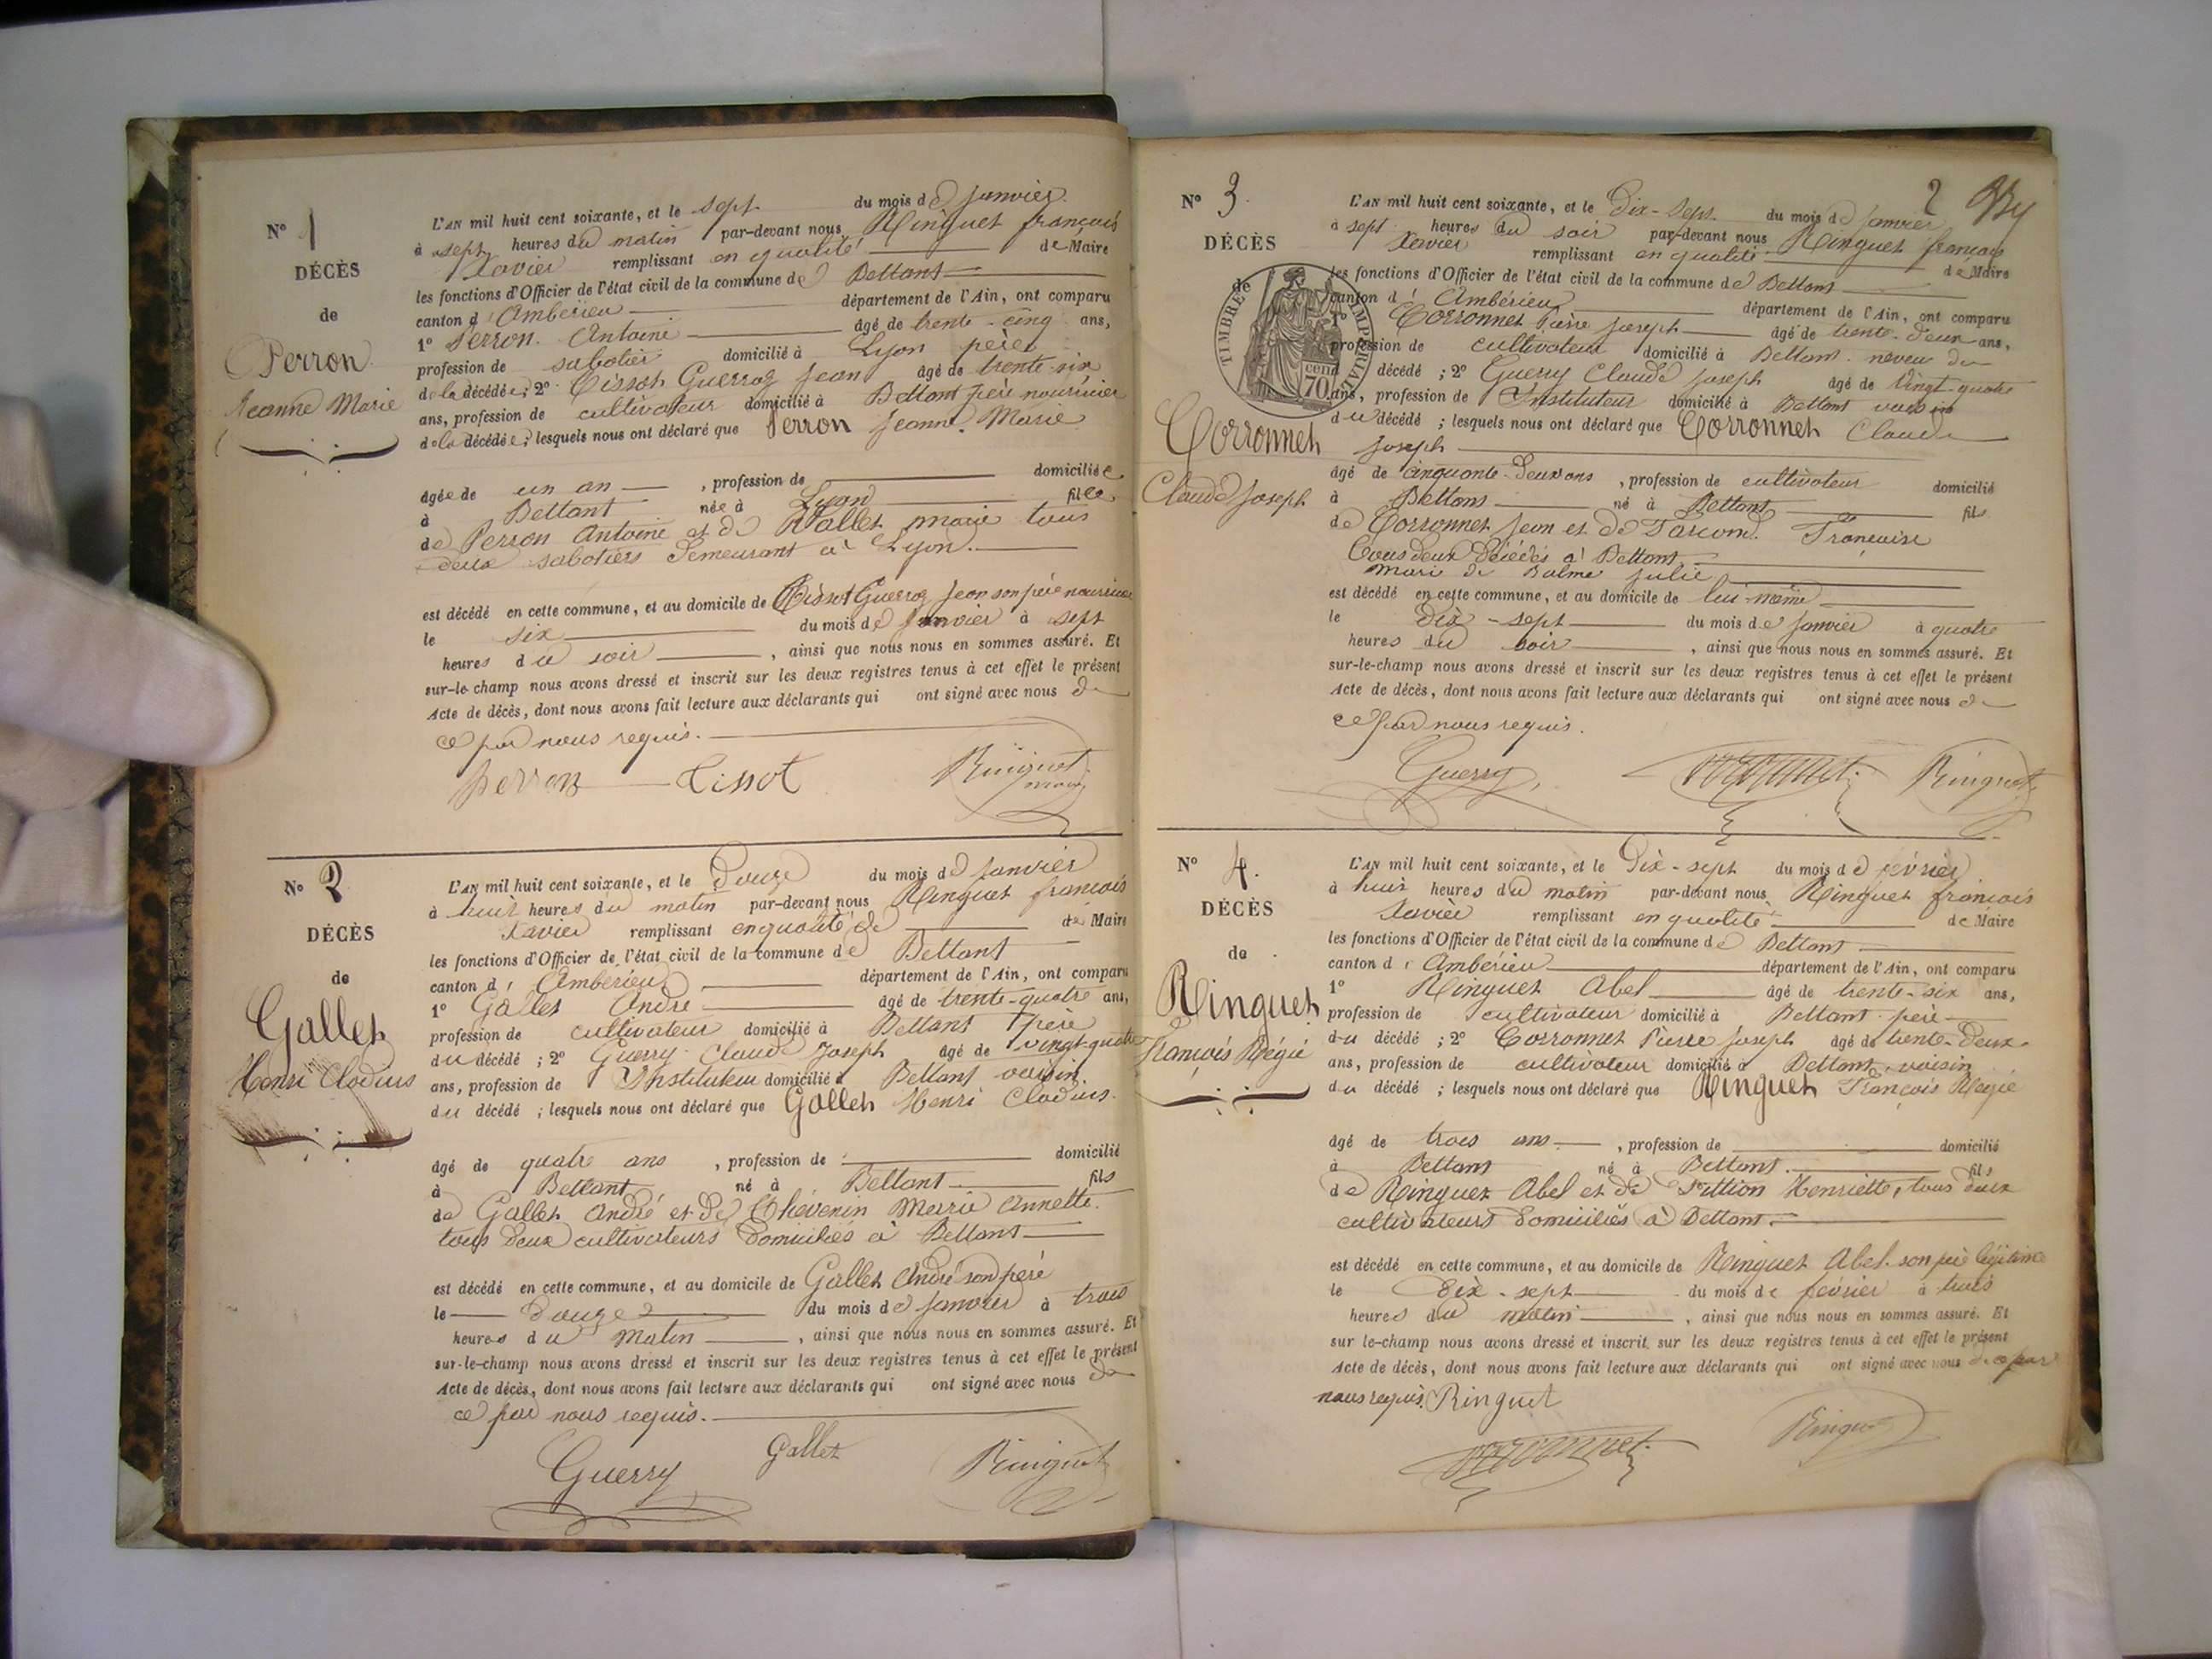 N° 1
DÉCÈS
de
Perron
Jeanne Marie
L'AN mil huit cent soixante, et le sept du mois de Janvier
à sept heures du matin par-devant nous Ringuet françois
Xavier remplissant en qualité de Maire
les fonctions d'Officier de l'état civil de la commune de Bettant
canton d'Ambérieu département de l'Ain, ont comparu
1° Perron Antoine âgé de trente-cinq ans,
profession de sabotier domicilié à Lyon père
de la décédée ; 2° Tissot Guerraz Jean âgé de trente-six
ans, profession de cultivateur domicilié à Bettant père nourricier
de la décédée ; lesquels nous ont déclaré que Perron Jeanne Marie
âgée de un an , profession de domiciliée
à Bettant née à Lyon fille
de Perron Antoine et de Vallet marie tous
deux sabotiers demeurant à Lyon.
est décédé en cette commune, et au domicile de Tissot Guerraz Jean son père nourricier
le six du mois de Janvier à sept
heures du soir , ainsi que nous nous en sommes assuré. Et
sur-le-champ nous avons dressé et inscrit sur les deux registres tenus à cet effet le présent
Acte de décès, dont nous avons fait lecture aux déclarants qui ont signé avec nous de
ce par nous requis.
perron Tissot Ringuet maire
N° 2
DÉCÈS
de
Gallet
Henri Clodius
L'AN mil huit cent soixante, et le Douze du mois de Janvier
à huit heures du matin par-devant nous Ringuet françois
Xavier remplissant en qualité de de Maire
les fonctions d'Officier de l'état civil de la commune de Bettant
canton d'Ambérieu département de l'Ain, ont comparu
1° Gallet André âgé de trente-quatre ans,
profession de cultivateur domicilié à Bettant père
du décédé ; 2° Guerry Claude Joseph âgé de vingt-quatre
ans, profession de Instituteur domicilié à Bettant voisin
du décédé ; lesquels nous ont déclaré que Gallet Henri Clodius.
âgé de quatre ans , profession de domicilié
à Bettant né à Bettant fils
de Gallet André et de Thévenin Marie Annette.
tous deux cultivateurs domiciliés à Bettant
est décédé en cette commune, et au domicile de Gallet André son père
le Douze du mois de Janvier à trois
heures du matin , ainsi que nous nous en sommes assuré. Et
sur-le-champ nous avons dressé et inscrit sur les deux registres tenus à cet effet le présent
Acte de décès, dont nous avons fait lecture aux déclarants qui ont signé avec nous de
ce par nous requis.
Guerry Gallet Ringuet
2
N° 3.
DÉCÈS
de
TIMBRE IMPERIAL
70 cent
Corronnet
Claude Joseph
L'AN mil huit cent soixante, et le Dix-sept du mois de Janvier
à sept heures du soir par-devant nous Ringuet françois
Xavier remplissant en qualité de Maire
les fonctions d'Officier de l'état civil de la commune de Bettant
canton d'Ambérieu département de l'Ain, ont comparu
1° Corronnet Pierre Joseph âgé de trente-deux ans,
profession de cultivateur domicilié à Bettant neveu du
décédé ; 2° Guerry Claude Joseph âgé de vingt-quatre
ans, profession de Instituteur domicilié à Bettant voisin
du décédé ; lesquels nous ont déclaré que Corronnet Claude
Joseph
âgé de cinquante-deux ans , profession de cultivateur domicilié
à Bettant né à Bettant fils
de Corronnet Jean et de Françoise
tous deux décédés à Bettant
mari de Balme Julie
est décédé en cette commune, et au domicile de lui-même
le Dix-sept du mois de Janvier à quatre
heures du soir , ainsi que nous nous en sommes assuré. Et
sur-le-champ nous avons dressé et inscrit sur les deux registres tenus à cet effet le présent
Acte de décès, dont nous avons fait lecture aux déclarants qui ont signé avec nous de
ce par nous requis.
Guerry Corronnet Ringuet
N° 4.
DÉCÈS
de
Ringuet
François Régie
L'AN mil huit cent soixante, et le Dix-sept du mois de février
à huit heures du matin par-devant nous Ringuet françois
Xavier remplissant en qualité de Maire
les fonctions d'Officier de l'état civil de la commune de Bettant
canton d'Ambérieu département de l'Ain, ont comparu
1° Ringuet Abel âgé de trente-six ans,
profession de cultivateur domicilié à Bettant père
du décédé ; 2° Corronnet Pierre Joseph âgé de trente-deux
ans, profession de cultivateur domicilié à Bettant voisin
du décédé ; lesquels nous ont déclaré que Ringuet François Régie
âgé de trois ans , profession de domicilié
à Bettant né à Bettant. fils
de Ringuet Abel et de Henriette, tous deux
cultivateurs domiciliés à Bettant.
est décédé en cette commune, et au domicile de Ringuet Abel son père légitime
le Dix-sept du mois de février à trois
heures du matin , ainsi que nous nous en sommes assuré. Et
sur le-champ nous avons dressé et inscrit sur les deux registres tenus à cet effet le présent
Acte de décès, dont nous avons fait lecture aux déclarants qui ont signé avec nous de ce par
nous requis. Ringuet
Corronnet Ringuet